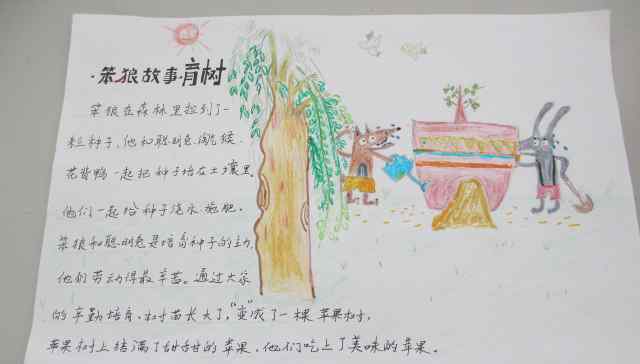 ·笨狼故事·育树
笨狼在森林里捡到了一
粒种子，他和聪明兔、胖棕熊、
花背鸭一起把种子培在土壤里。
他们一起给种子浇水施肥。
笨狼和聪明兔是培育种子的主力，
他们劳动得最辛苦。通过大家
的辛勤培育，树苗长大了，“变”成了一棵苹果树，
苹果树上结满了甜甜的苹果，他们吃上了美味的苹果。